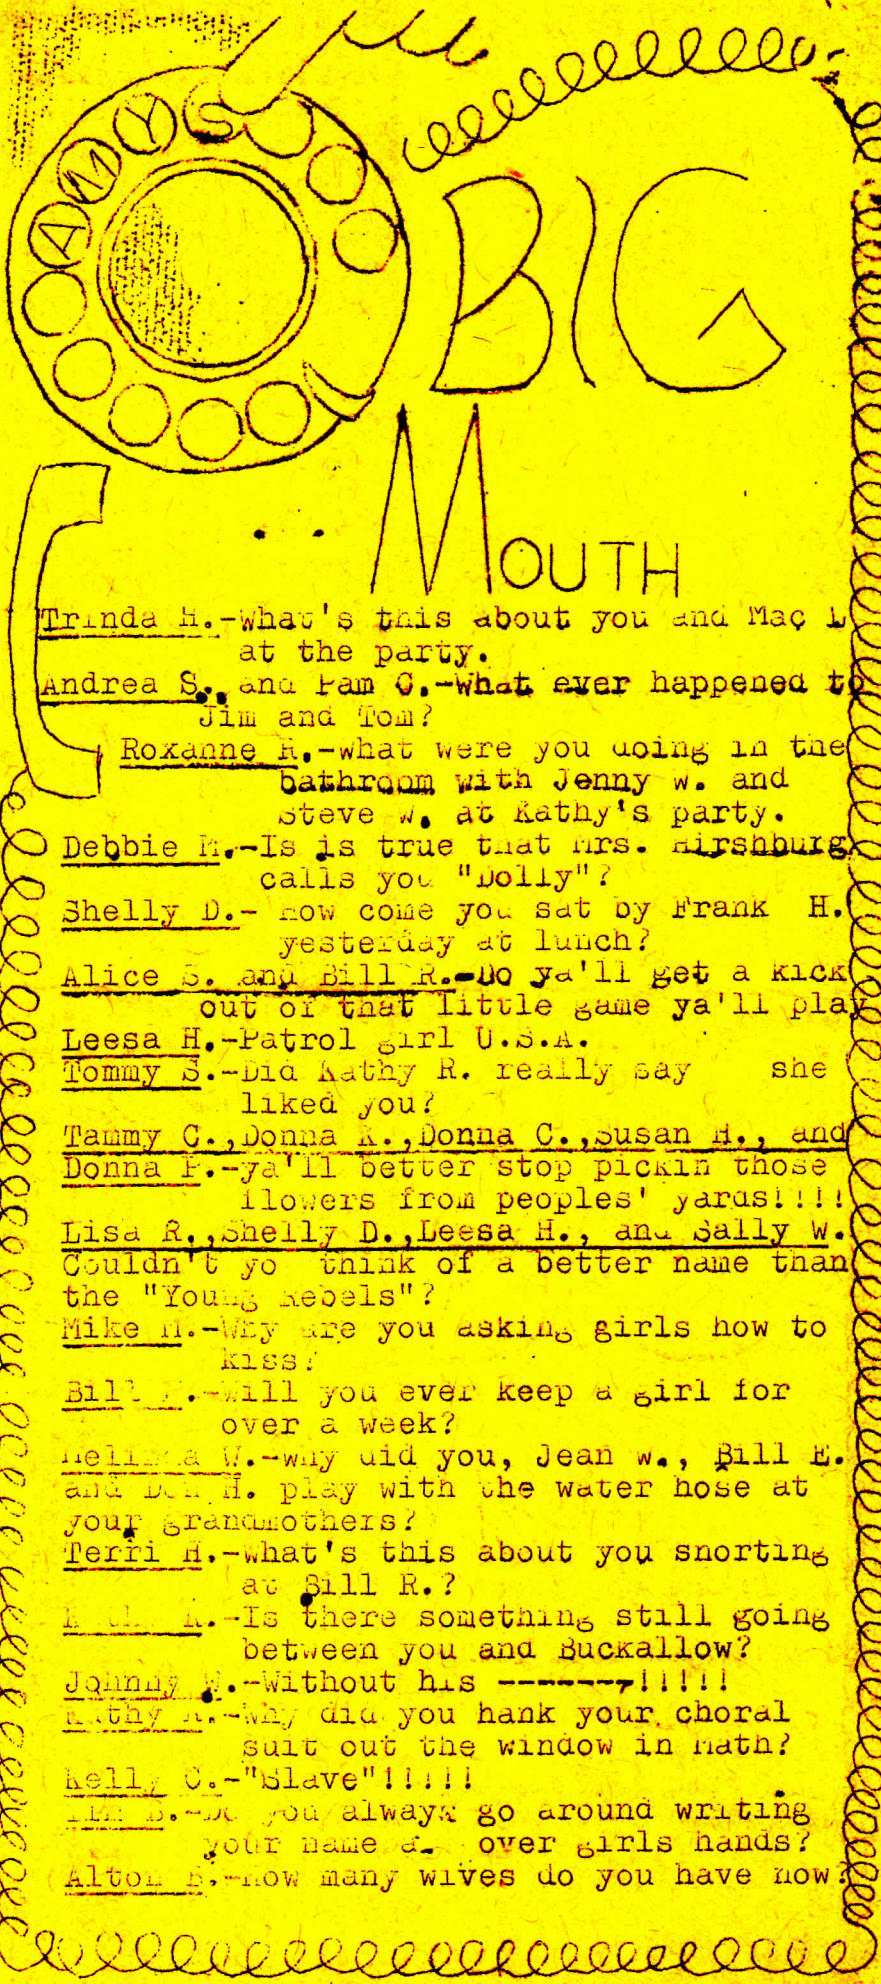 AMYS
BIG
MOUTH
Trinda H.-what's this about you and Mac L
at the party.
Andrea S., and Pam C.-what ever happened to
Jim and Tom?
Roxanne R.-what were you doing in the
bathroom with Jenny W. and
Steve W. at Kathy's party.
Debbie M.-Is is true that Mrs. Hirshburg
calls you "Dolly"?
Shelly D.- How come you sat by Frank H.
yesterday at lunch?
Alice S. and Bill R.-Do ya'll get a kick
out of that little game ya'll play
Leesa H.-Patrol girl U.S.A.
Tommy S.-Did Kathy R. really say she
liked you?
Tammy C.,Donna K.,Donna C.,Susan H., and
Donna P.-ya'll better stop pickin those
flowers from peoples' yards!!!!
Lisa R.,Shelly D.,Leesa H., and Sally W.
Couldn't yo think of a better name than
the "Young Rebels"?
Mike M.-Why are you asking girls how to
kiss?
Bill .-Will you ever keep a girl for
over a week?
Melinda W.-why did you, Jean W., Bill E.
and H. play with the water hose at
your grandmothers?
Terri H.-what's this about you snorting
at Bill R.?
-Is there something still going
between you and Buckallow?
Johnny W.-Without his -------!!!!!
Kathy .-Why did you hank your choral
suit out the window in Math?
Kelly C.-"Slave"!!!!!
B.-Do you always go around writing
your name over girls hands?
Alton B.-How many wives do you have now?